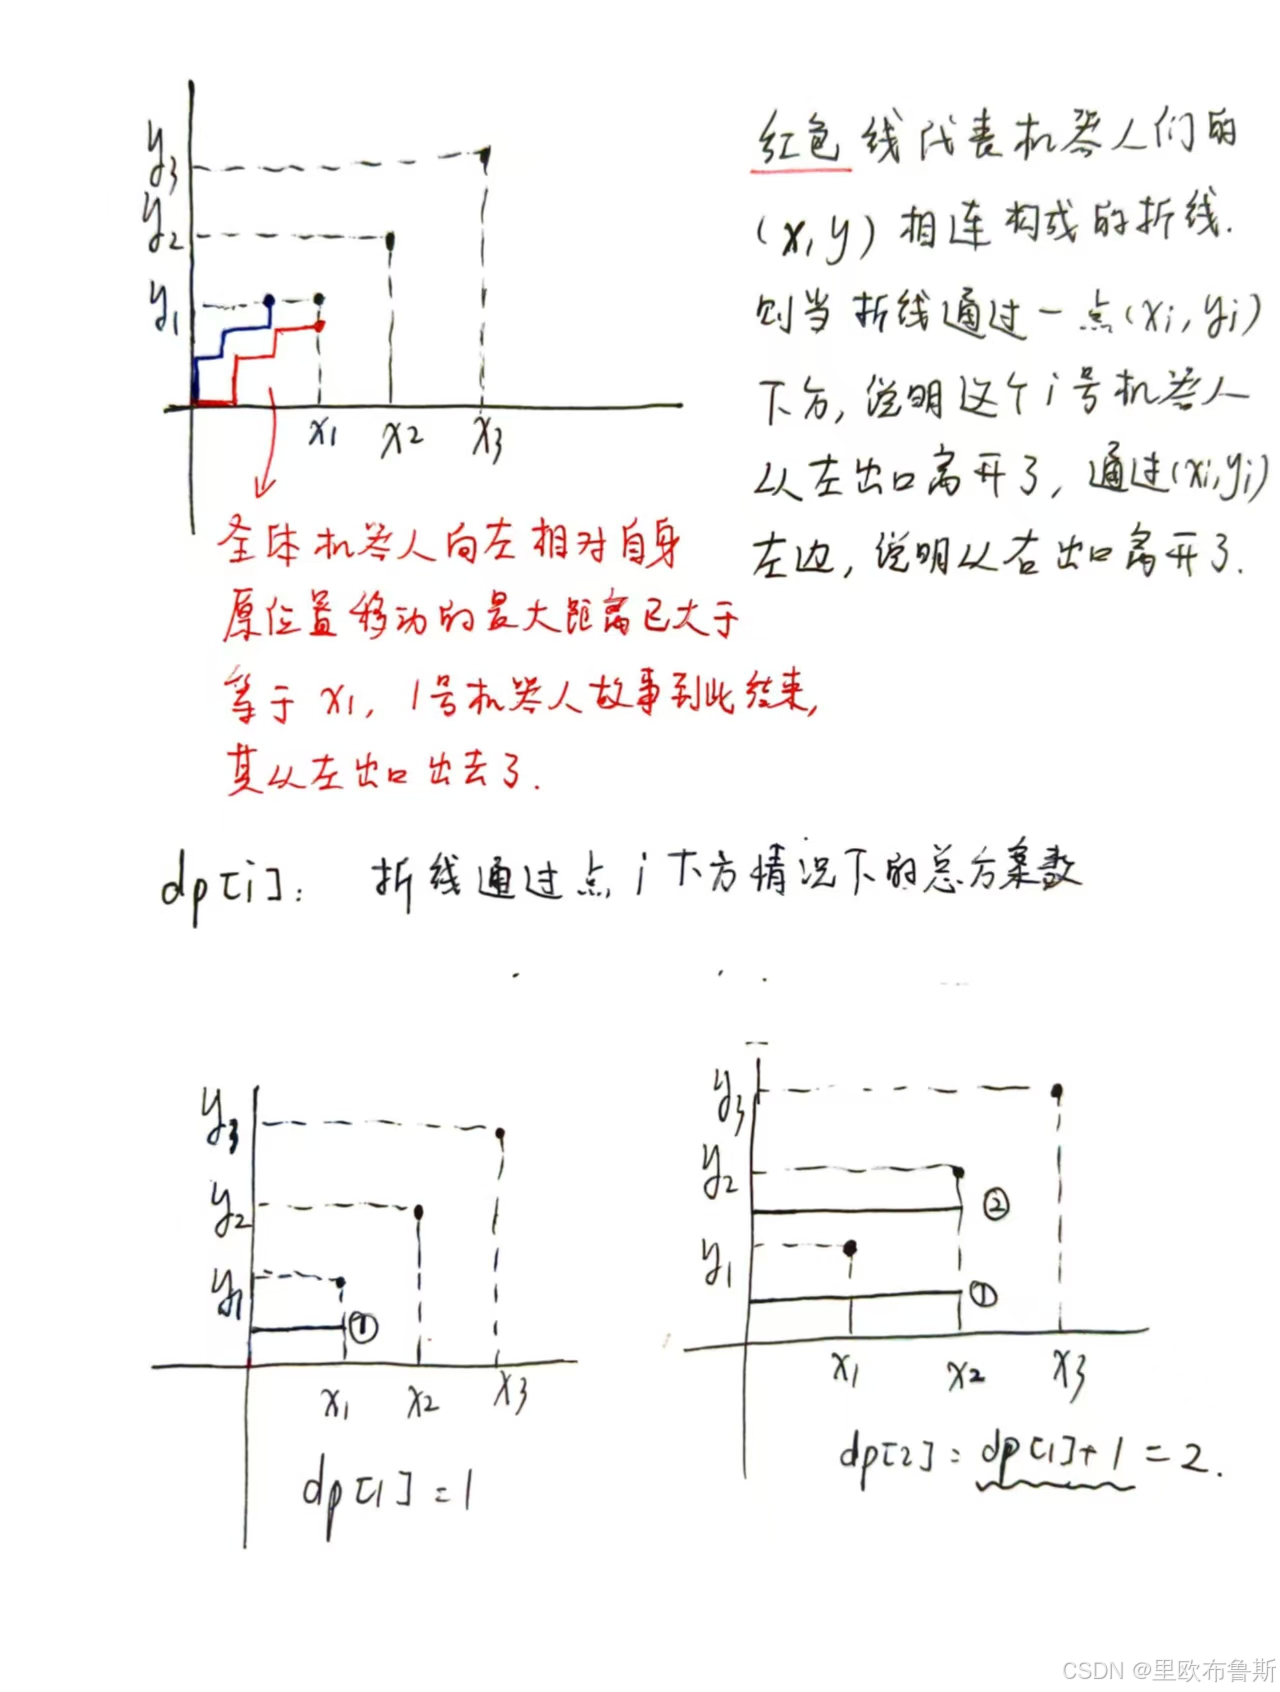 y3
y2
y1
x1 x2 x3
红色线代表机器人们的
(x,y)相连构成的折线.
则当折线通过一点(xi,yi)
下方,说明这个i号机器人
从左出口离开了,通过(xi,yi)
左边,说明从右出口离开了.
全体机器人向左相对自身
原位置移动的最大距离已大于
等于x1,1号机器人故事到此结束,
其从左出口出去了.
dp[i]: 折线通过点i下方情况下的总方案数
y3
y2
y1
①
x1 x2 x3
dp[1]=1
y3
y2
②
y1
①
x1 x2 x3
dp[2]=dp[1]+1=2.
CSDN @里欧布鲁斯